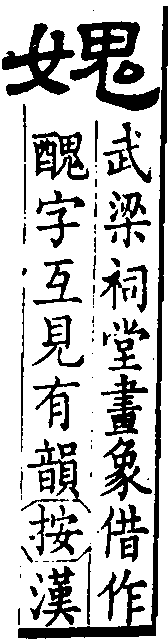 媿
武梁祠堂畫象借作
醜字互見有韻按漢